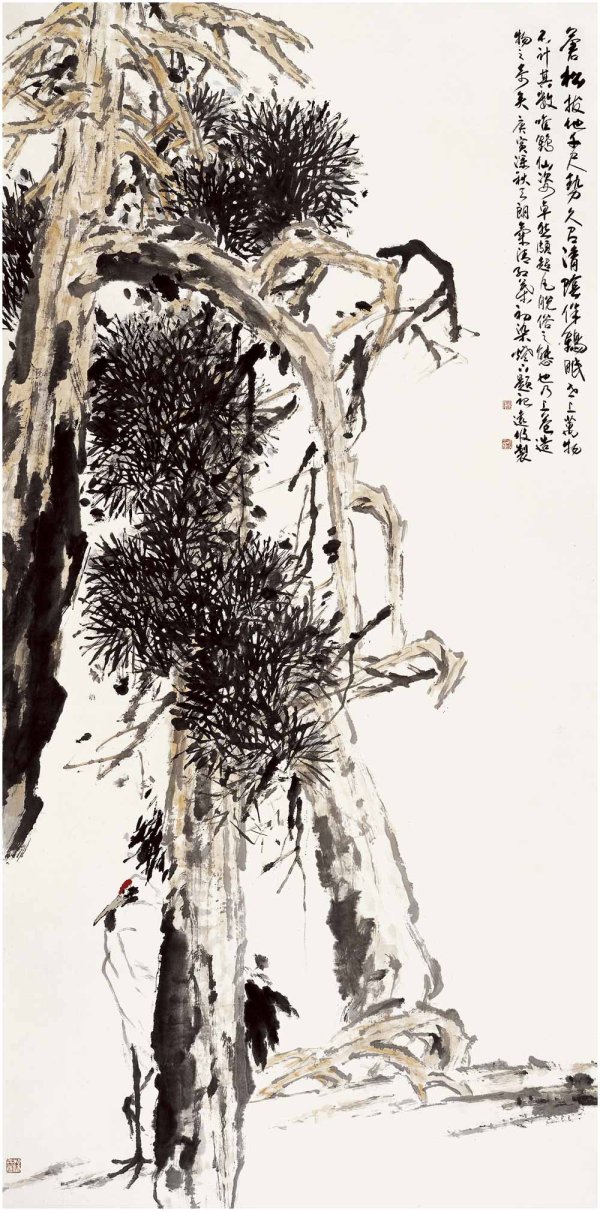 蒼松拔地千尺勢久召清陰伴鶴眠世上萬物
不計其數唯鶴仙姿卓然頗超凡脫俗之態也乃上蒼造
物之奇矣庚寅深秋天朗氣清紅葉初染燈下題記遠波製